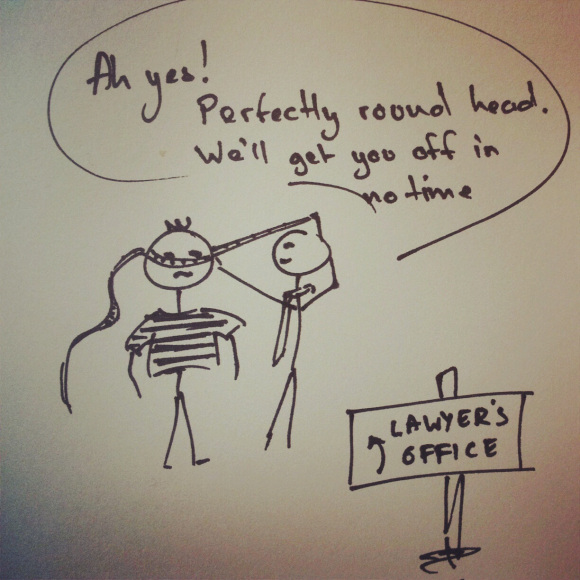 Ah yes!
Perfectly round head.
We'll get you off in
no time
LAWYER'S
OFFICE